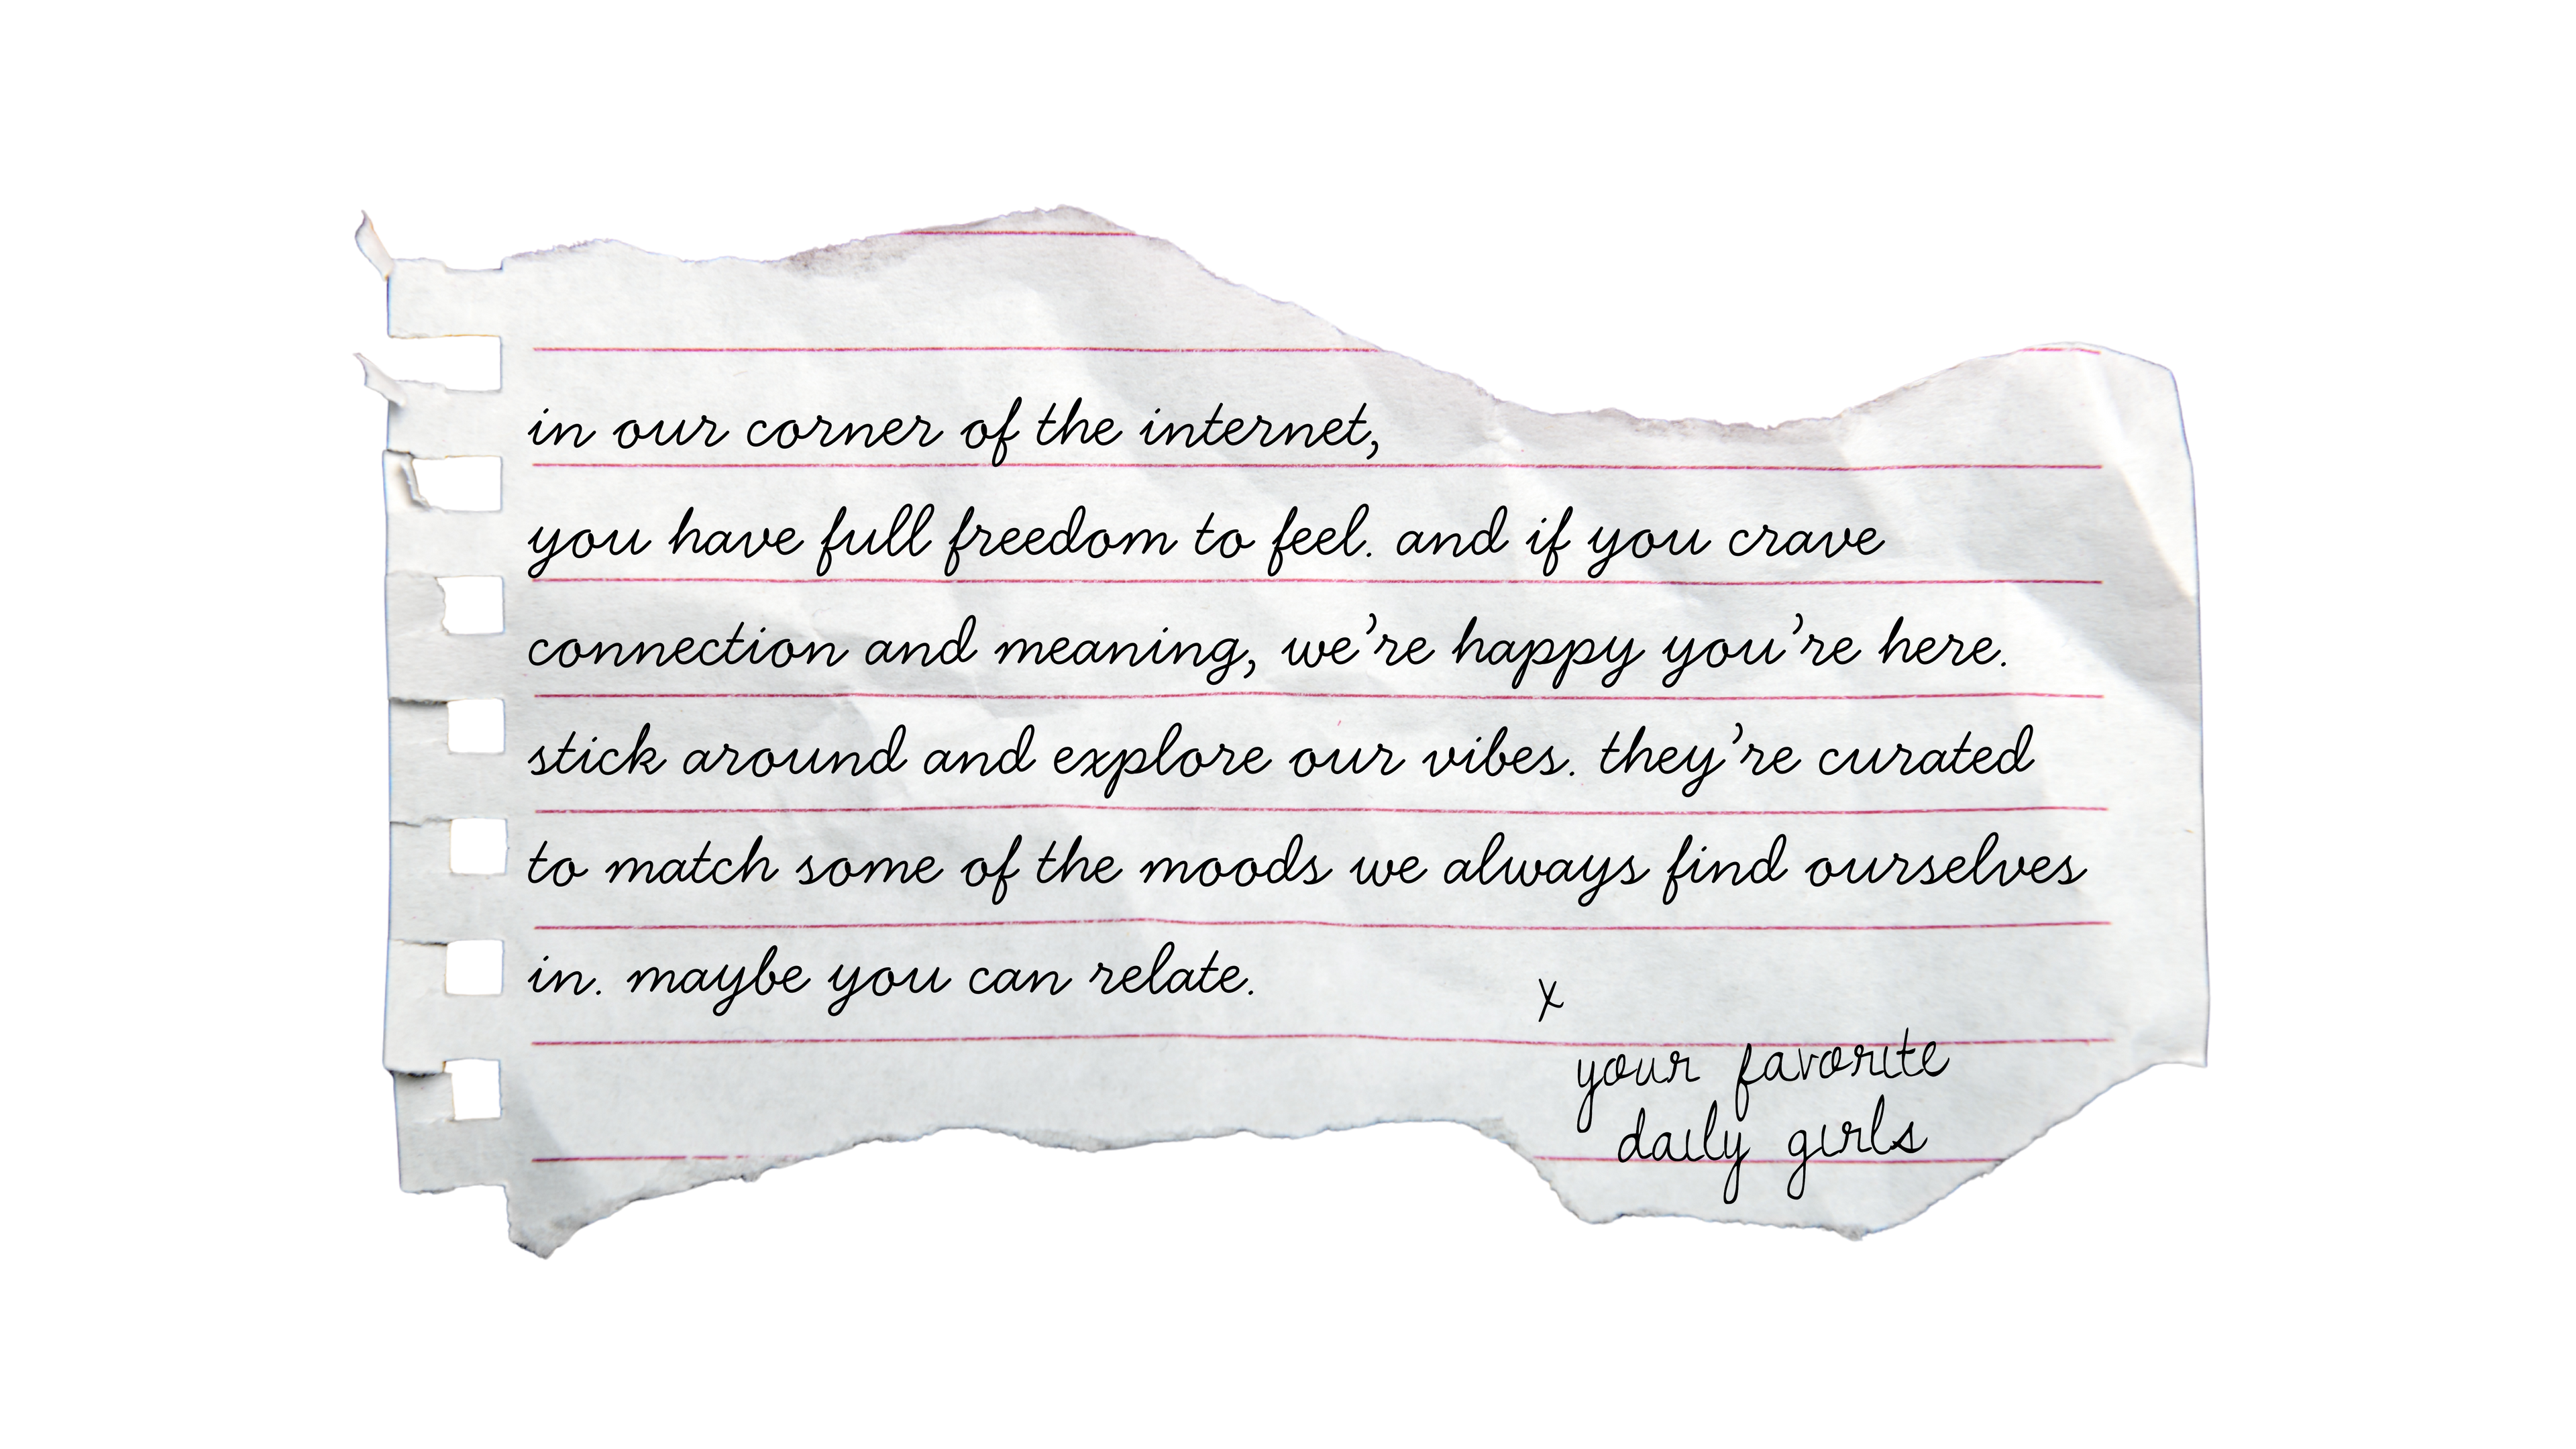 in our corner of the internet,
you have full freedom to feel. and if you crave
connection and meaning, we’re happy you’re here.
stick around and explore our vibes. they’re curated
to match some of the moods we always find ourselves
in. maybe you can relate.
x
your favorite
daily girls